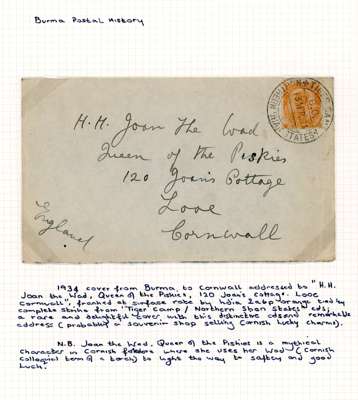 Burma Postal History
H.H. Joan The Wad
Queen of the Piskies
120 Joan's Cottage
Looe
Cornwall
England
1934 cover from Burma to Cornwall addressed to "H.H.
Joan the Wad, Queen of the Piskies, 120 Joan's Cottage. Looe
Cornwall", franked at surface rate by India 2a6p orange tied by
complete strike from "Tiger Camp / Northern Shan States" cds,
a rare and delightful cover with this distinctive cds and remarkable
address (probably a souvenir shop selling Cornish Lucky charms).
N.B. Joan the Wad, Queen of the Piskies is a mythical
character in Cornish folklore where she uses her Wad (Cornish
Colloquial term of a torch) to light the way to safety and good
luck.